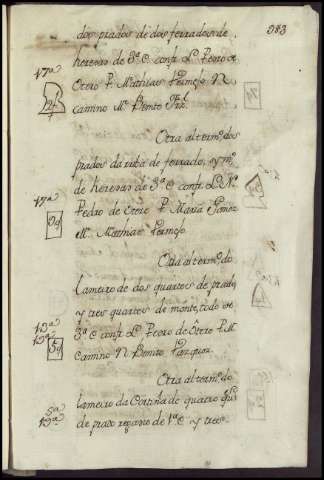 383
dos prados de dos ferrados de
herenas de 3ª C confr. L. Pedro de
17ª
Otero P. Mathias Fermoso N.
camino Mº Benito
Otra al termº dos
prados da riba de ferrado, y mº
de herenas de 3ª C confr. L. Nº
17ª
Pedro de Otero P. Maria Gomez
Mº Mathias Fermoso
Otra al termº do
lameiro de dos quartos de prado,
y tres quartos de monte, todo de
13ª
3ª C confr L. Pedro de Otero P. M.
19ª
camino N. Benito Vazquez
Otra al termº do
lameiro da Cortiña de quatro
5ª
de prado regadio de 1ª C y tres
13ª